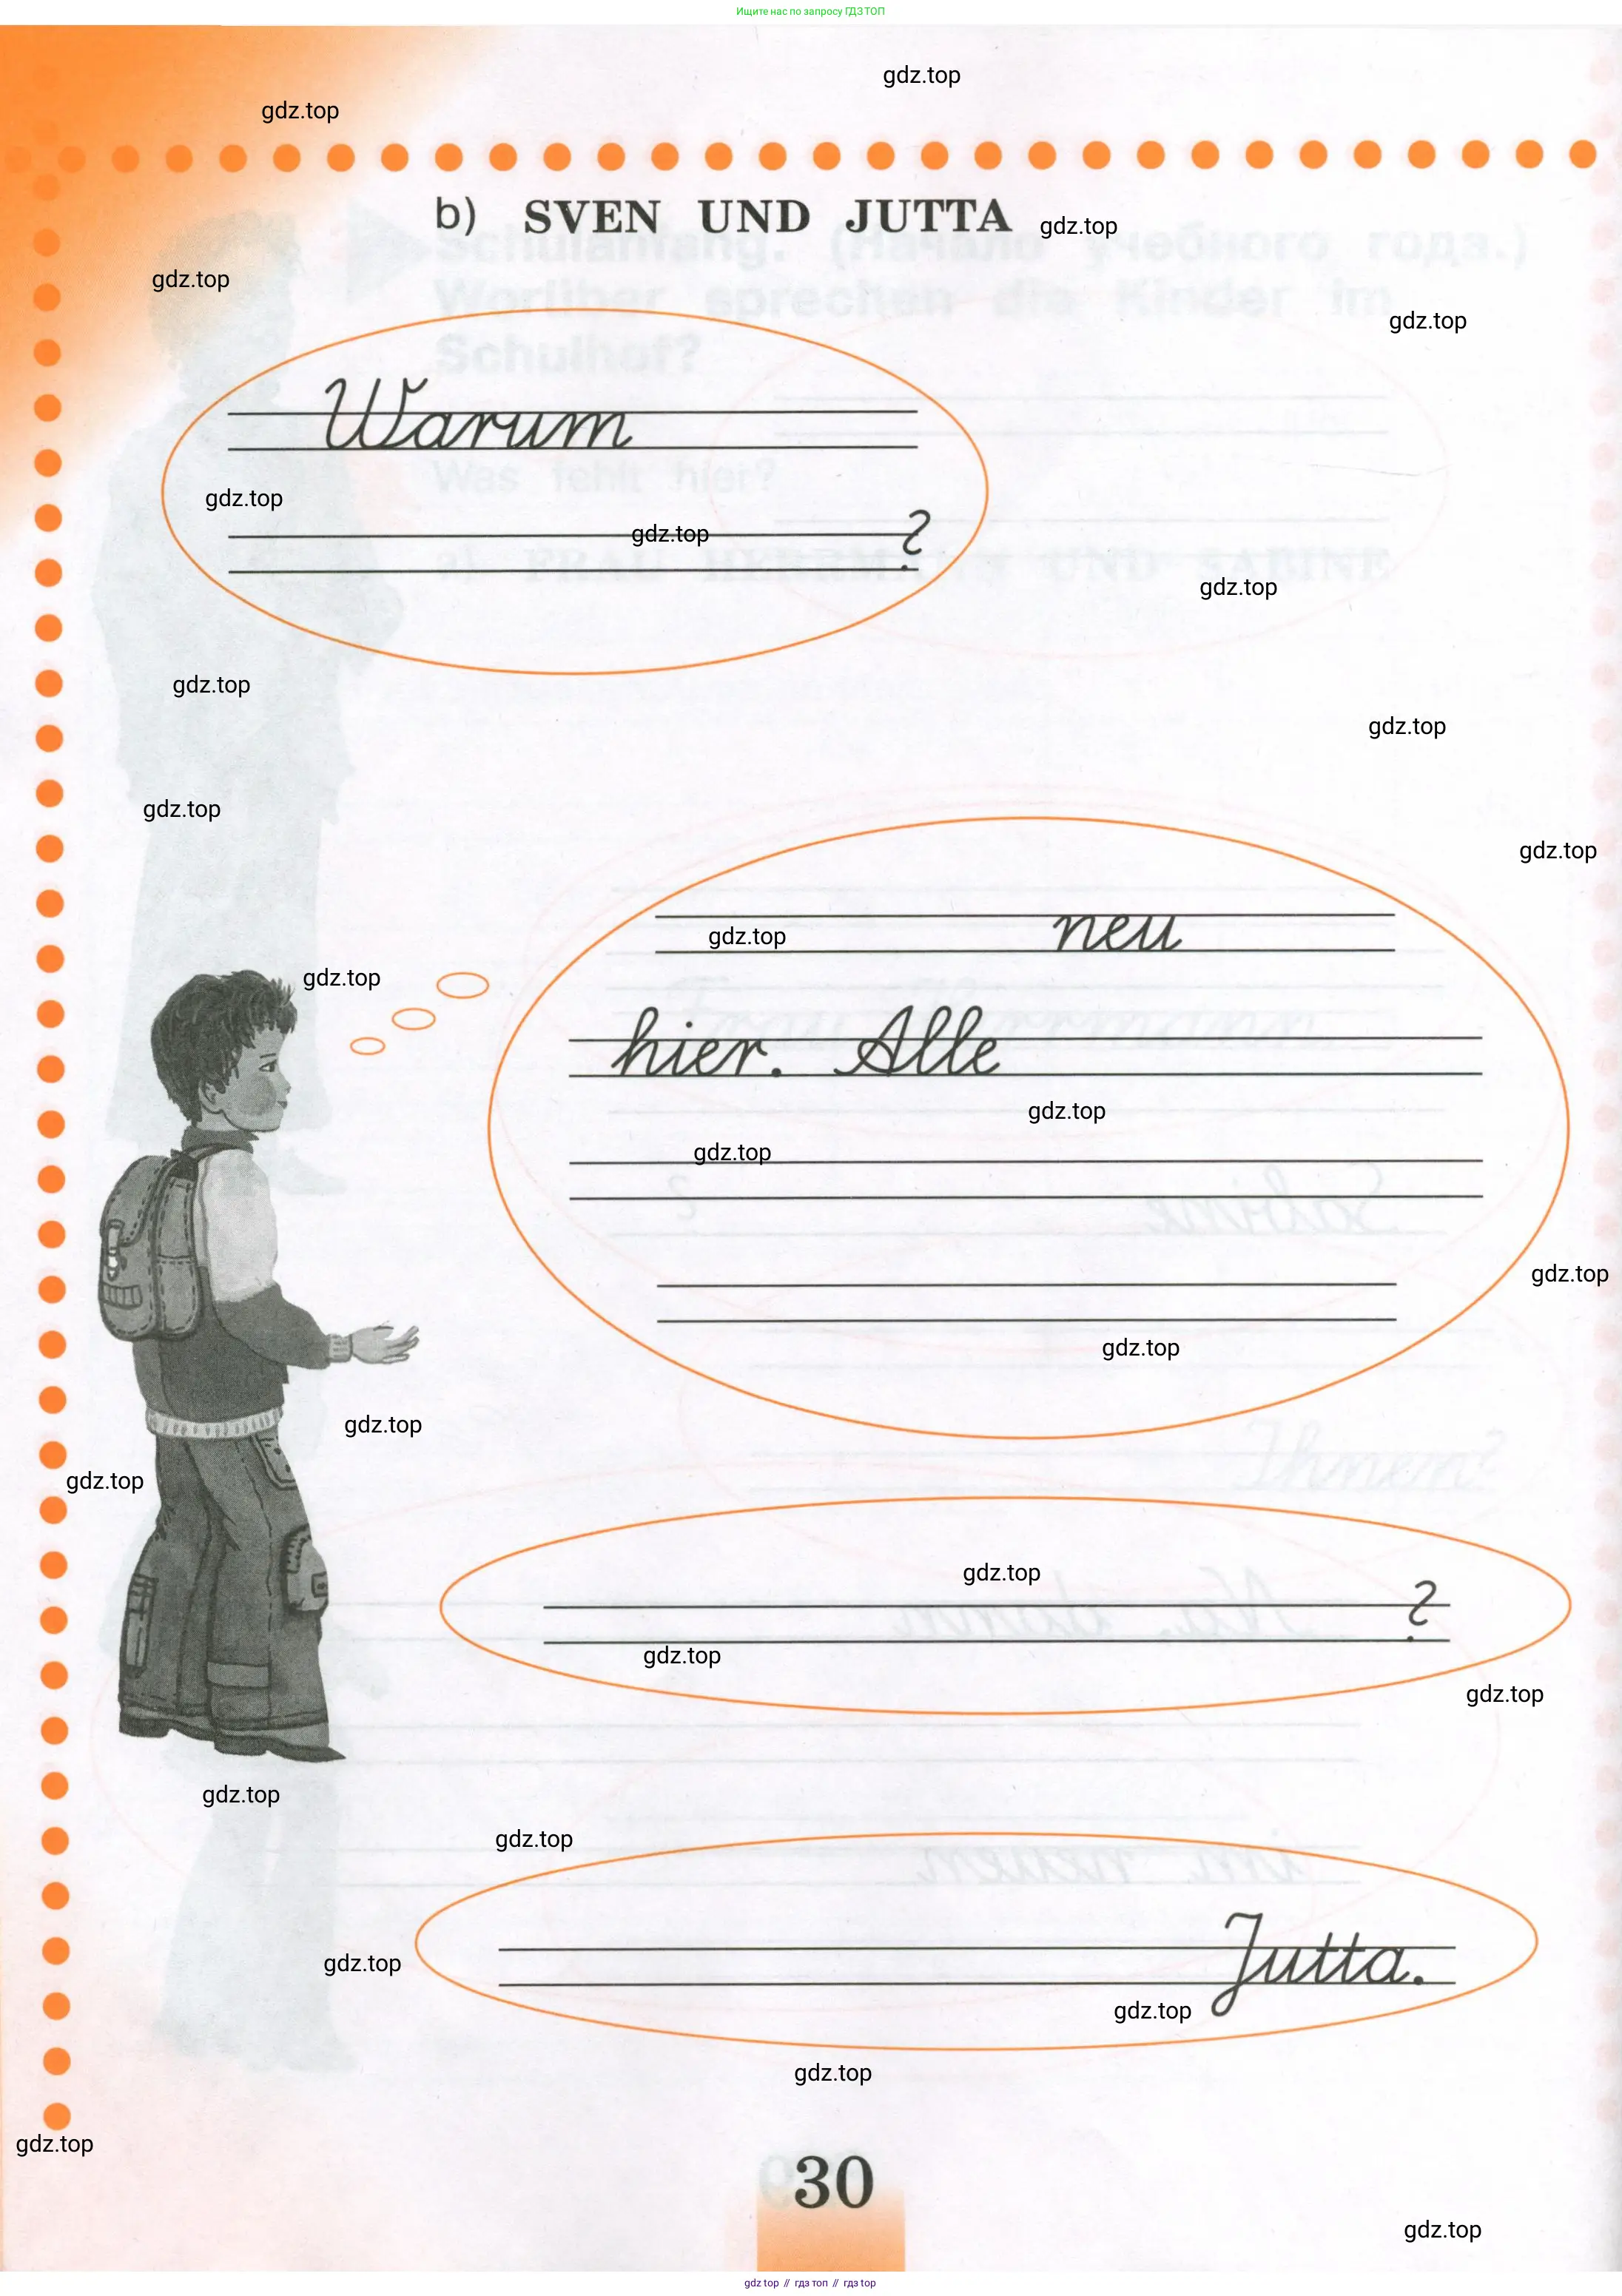 Ищите нас по запросу ГДЗ ТОП
gdz.top
gdz.top
b) SVEN UND JUTTA gdz.top
gdz.top
gdz.top
Warum
gdz.top
gdz.top ?
gdz.top
gdz.top
gdz.top
gdz.top
gdz.top
gdz.top neu
gdz.top
hier. Alle
gdz.top
gdz.top
gdz.top
gdz.top
gdz.top
gdz.top
gdz.top
?
gdz.top
gdz.top
gdz.top
gdz.top
Jutta.
gdz.top
gdz.top
gdz.top
gdz.top
30
gdz.top
gdz top // гдз топ // гдз top